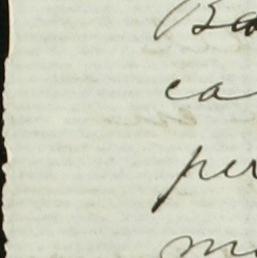 Ba
ca
per
mo